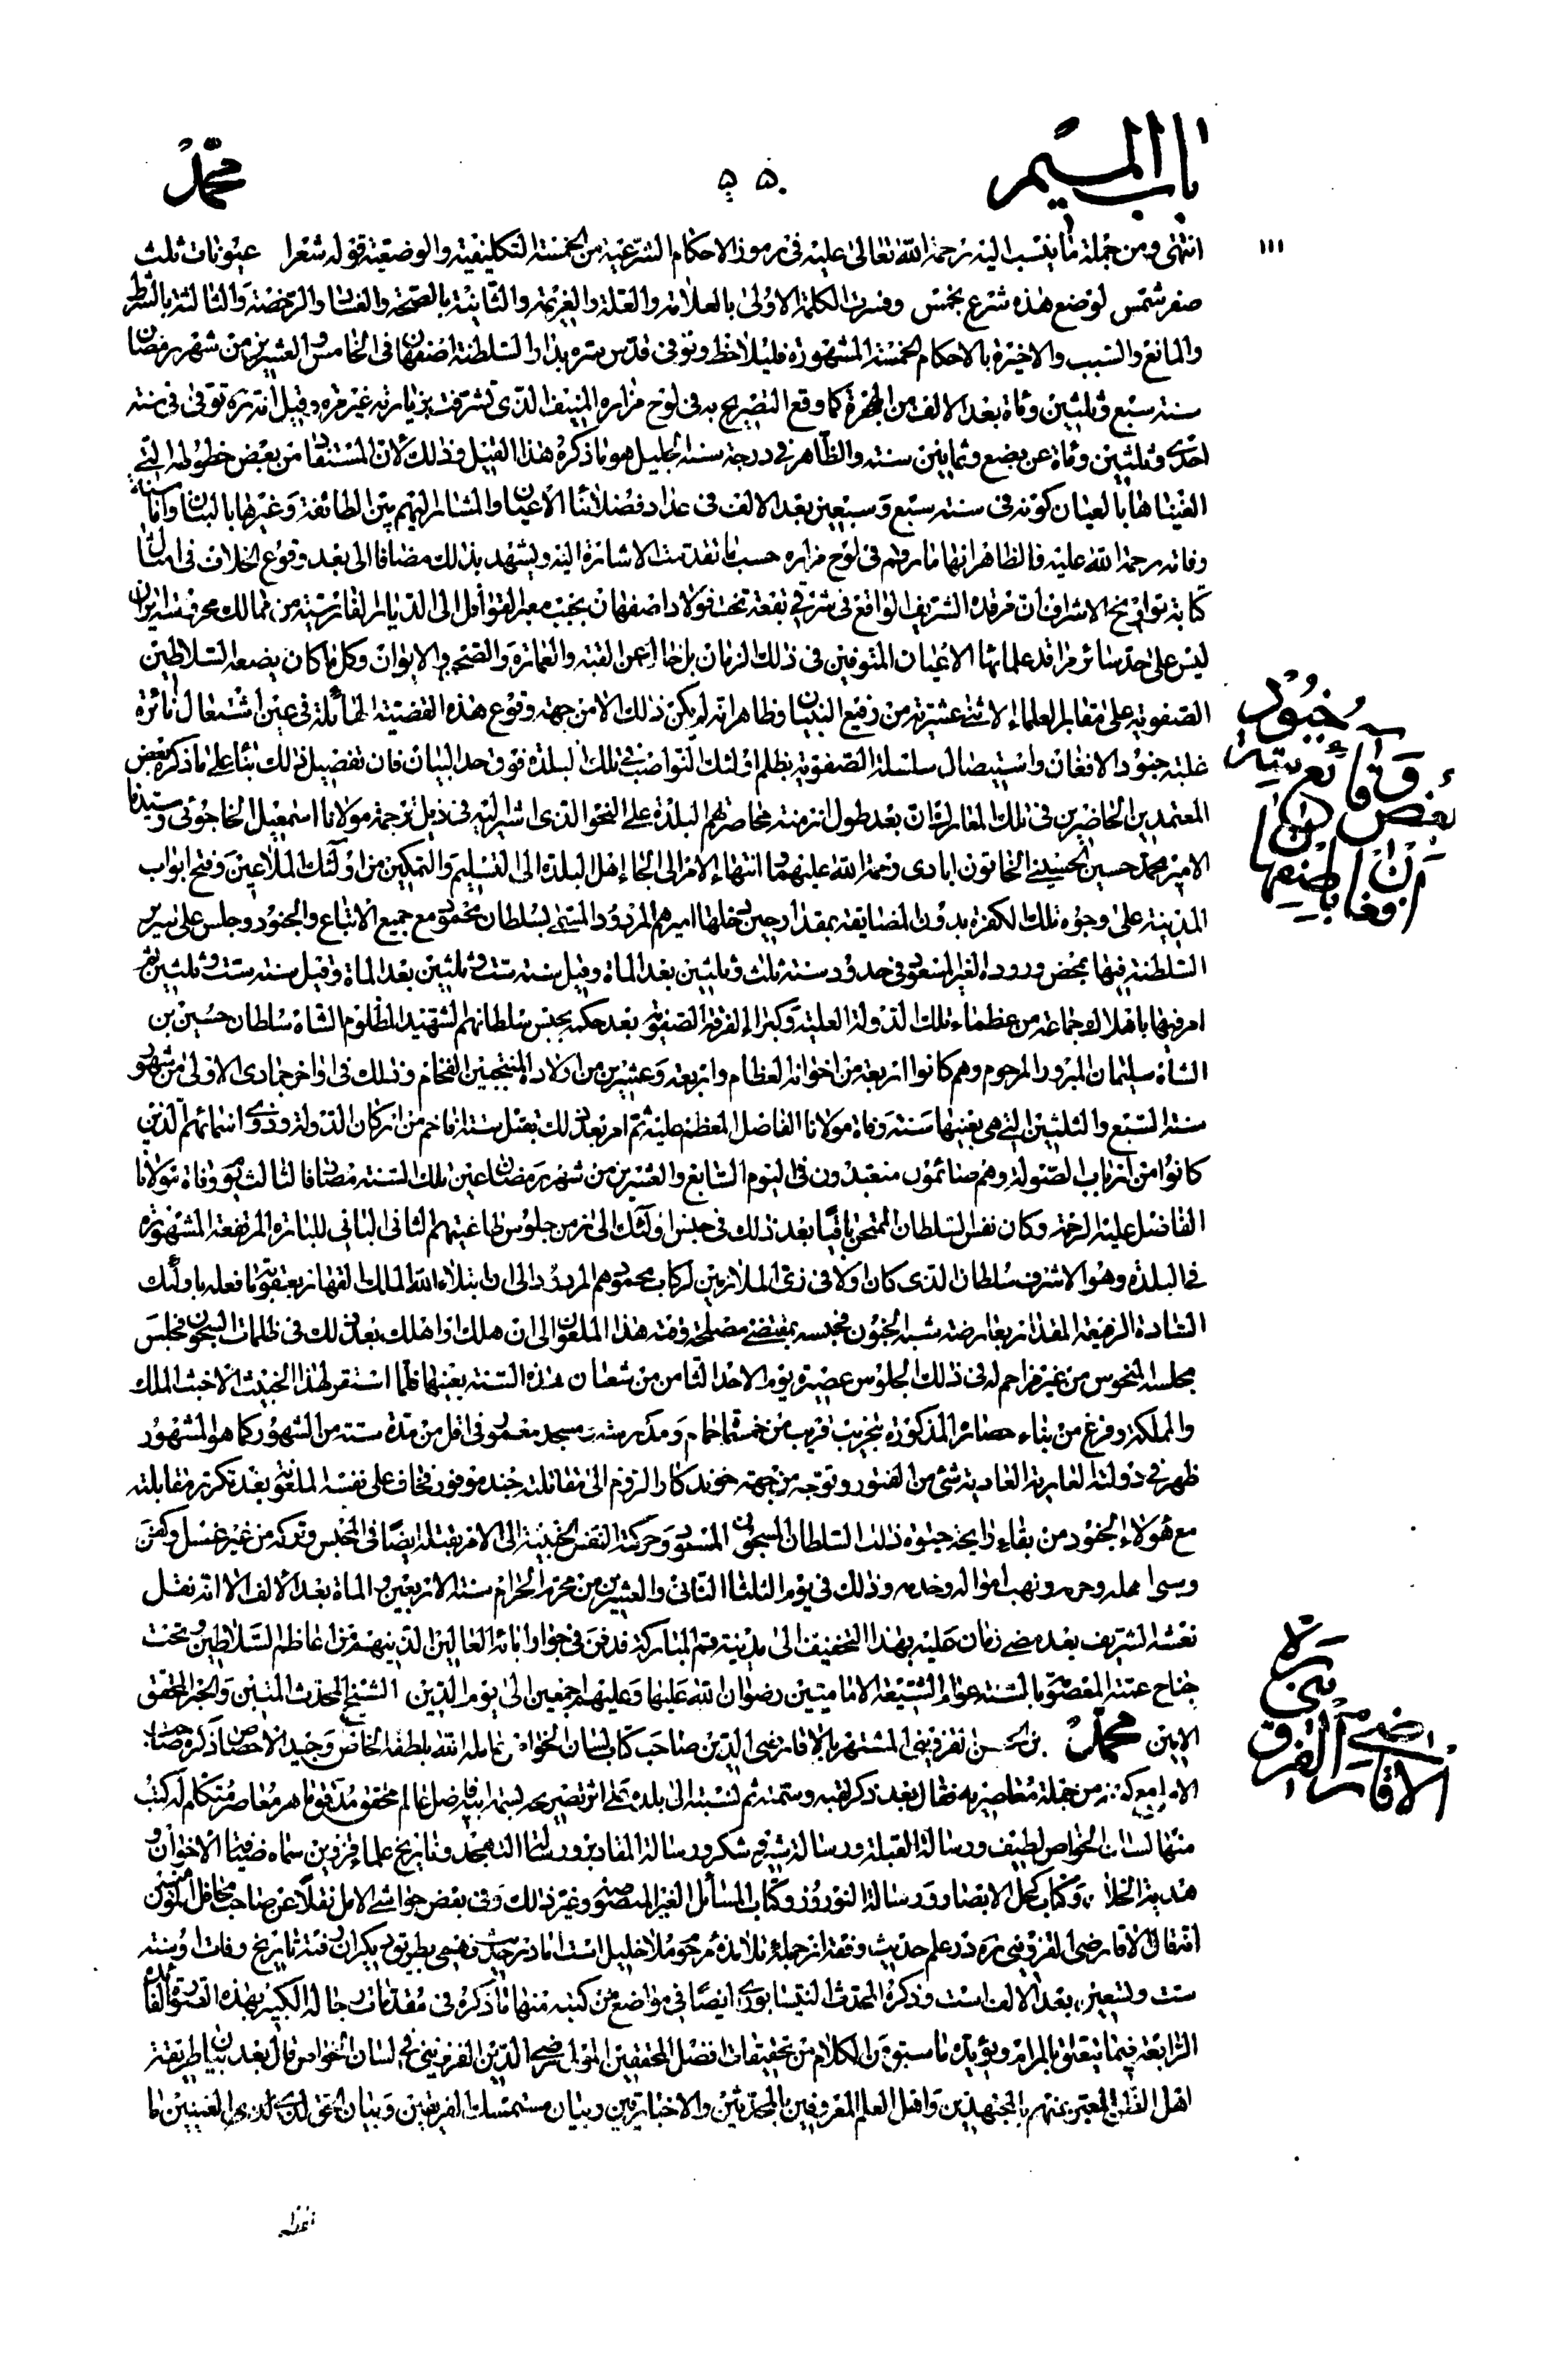 باب الميم
محمد
انتهى ومن جملة ما ينسب اليه رحمة الله تعالى عليه فى رموز الاحكام الشرعية من الخمسة التكليفية والوضعية قوله شعرا عيونات ثلث
صفر شمس لوضع هذه شرع بخمس وفسرت الكلمة الاولى بالعلامة والعلة والعزيمة والثانية بالصحة والفساد والرخصة والثالثة بالشرط
والمانع والسبب والاخيرة بالاحكام الخمسة المشهورة فليلاحظ وتوفى قدس سره بدار السلطنة اصفهان فى الخامس والعشرين من شهر رمضان
سنة سبع وثلثين ومأة بعد الالف من الهجرة كما وقع التصريح به فى لوح مزاره المنيف الذى تشرفت بزيارته غير مرة وقيل انه ره توفى فى سنة
احدى وثلثين ومأة عن بضع وثمانين سنة والظاهر فى درجة سنه الجليل هو ما ذكره هذا القيل وذلك لان المستفاد من بعض خطوطه التى
الفيناها بالعيان كونه فى سنة سبع وسبعين بعد الالف فى عداد فضلائنا الاعيان والمشار اليهم بين الطائفة وغيرها بالبنان واما سنة
وفاته رحمة الله عليه فالظاهر انها ما رقم فى لوح مزاره حسب ما تقدمت الاشارة اليه ويشهد بذلك مضافا الى بعد وقوع الخلاف فى امثال
كتابة تواريخ الاشراف ان مرقده الشريف الواقع فى شرقى بقعة تخت فولاد اصفهان بجنب معبر القوافل الى الديار الفارسية من ممالك محروسة ايران
ليس على حد سائر مراقد علمائها الاعيان المتوفين فى ذلك الزمان بل خال عن القبة والعمارة والصحن والايوان وكل ما كان يضعه السلاطين
الصفوية على مقابر العلماء الاثنى عشرية من رفيع البنيان وظاهر انه لم يكن ذلك الا من جهة وقوع هذه القضية الهائلة فى عين اشتعال نائرة
غلبة جنود الافغان واستيصال سلسلة الصفوية بظلم اولئك النواصب فى تلك البلدة فوق حد البيان فان تفصيل ذلك بناء على ما ذكره بعض
المعتمدين الحاضرين فى تلك المعارك ان بعد طول ازمنة محاصرتهم البلدة على النحو الذى اشير اليه فى ذيل ترجمة مولانا اسمعيل الخاجوئى وسيدنا
الامير محمد حسين الحسينى الخاتون ابادى رحمة الله عليهما وانتهاء الامر الى الجاء اهل البلدة الى التسليم والتمكين من اولئك الملاعين وفتح ابواب
المدينة على وجوه تلك الكفرة بدون المضايقة بمقدار حين دخلها اميرهم المردود المسمى بسلطان محمود مع جميع الاتباع والجنود وجلس على سرير
السلطنة فيها بمحض وروده الغير المسعود فى حدود سنة ثلث وثلثين بعد المأة وقيل سنة ست وثلثين ثم
امر فيها باهلاك جماعة من عظماء تلك الدولة العلية وكبراء الفرقة الصفوية بعد حكمه بحبس سلطانهم الشهيد المظلوم الشاه سلطان حسين بن
الشاه سليمان المبرور المرحوم وهم كانوا اربعة من اخوانه العظام واربعة وعشرين من اولاده المنتجبين الفخام وذلك فى اواخر جمادى الاولى من شهور
سنة السبع والثلثين التى هى بعينها سنة وفاة مولانا الفاضل المعظم عليه ثم امر بعد ذلك بقتل ستة اخر من اركان الدولة وذوى اسمائهم الذين
كانوا من ارباب الصولة وهم صائمون متعبدون فى اليوم السابع والعشرين من شهر رمضان عين تلك السنة مصادفا لثالث يوم وفاة مولانا
الفاضل عليه الرحمة وكان نفس السلطان الممتحن باقيا بعد ذلك فى حبس اولئك الى زمن جلوس طاغيتهم الثانى البانى للبنائرة المرتفعة المشهورة
فى البلدة وهو الاشرف سلطان الذى كان اولا فى زى الملازمين لركاب محمودهم المردود الى ان ابتلاه الله الملك القهار بعقوبة ما فعله باولئك
السادة الرفيعة المقدار بعارضة شبه الجنون فحبسه بمقتضى مصلحة وقته هذا الملعون الى ان هلك او اهلك بعد ذلك فى ظلمات السجون فجلس
مجلسه المنحوس من غير مزاحم له فى ذلك الجلوس عصيرة يوم الاحد الثامن من شعبان هذه السنة بعينها فلما استقر لهذا الخبيث الاخبث الملك
والمملكة وفرغ من بناء حصائر المذكورة بتخريب قريب من خمسمأة حمام ومدرسة ومسجد معمور فى اقل من مدة ستة من الشهور كما هو المشهور
ظهر فى دولته العارية العادية شئ من الفتور وتوجه من جهة خوندكار الروم الى مقاتلته جند موفور فخاف على نفسه الملعونة بعد تكرر مقابلته
مع هؤلاء الجنود من بقاء رايحة حيوة ذلك السلطان المسجون المستور وحركته النفس الخبيثة الى الامر بقتله ايضا فى الحبس وتركه من غير غسل وكفن
وسبى اهله وحرمه ونهب امواله وخدمه وذلك فى يوم الثلثا الثانى والعشرين من محرم الحرام سنة الاربعين والمأة بعد الالف الا انه نقل
نعشه الشريف بعد مضى زمان عليه بهذا التخفيف الى مدينة قم المباركة فدفن فى جوار ابائه العالين الذينهم من اعاظم السلاطين وتحت
جناح عمته المعصومة بالسنة عوام الشيعة الامامية رضوان الله عليها وعليهم اجمعين الى يوم الدين الشيخ المحدث المتين والحبر المحقق
الامين محمد بن الحسن القزوينى المشتهر بالاقا رضى الدين صاحب كتاب لسان الخواص عامله الله بلطفه الخاص وجيد الاختصاص ذكره صاحب
الامل من جملة معاصريه فقال بعد ذكر لقبه وسمته ثم نسبته الى بلده على اثر تصريحه بسمة ابيه فاضل عالم محقق مدقق ماهر معاصر متكلم له كتب
منها لسان الخواص لطيف ورسالة القبلة ورسالة شير وشكر ورسالة المقادير ورسالة التهجد وتاريخ علماء قزوين سماه ضيافة الاخوان و
هدية الخلان وكتاب كحل الابصار ورسالة النوروز وكتاب المسائل الغير المنصوصة وغير ذلك وفى بعض حواشى الامل نقلا عن صاحب محافل المؤمنين
انتقال الاقا رضى القزوينى ره در علم حديث وفقه از جمله تلامذه مرحوم ملا خليل است اما در حديث فهمى بطريق ديگران رفته تاريخ وفات او سنه
ست وتسعين بعد الالف است وذكره المحدث النيسابورى ايضا فى مواضع من كتبه منها ما ذكره فى مقدمات رجاله الكبير بهذه الصورة الفائدة
الرابعة فيما يتعلق بالمرام ويؤيده ما سبق من الكلام من تحقيقات افضل المحققين المولى رضى الدين القزوينى فى لسان الخواص قال بعد بيان طريقة
اهل الظن المعبر عنهم بالمجتهدين واهل العلم المعروفين بالمحدثين والاخباريين وبيان مستمسك الفريقين وبيان الحق لدى الفئتين ما
جنود
وقايع سيئة
بعض
افغان باصفهان
الاقا رضى القزوينى ره